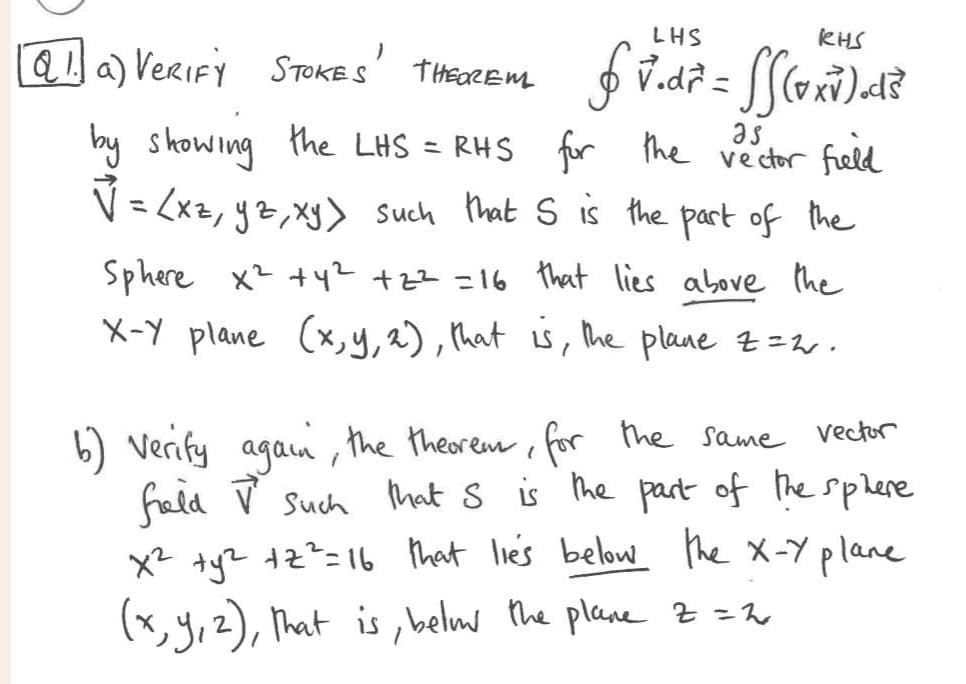 LHS RHS
Q1. a) VERIFY STOKES' THEOREM ∮ V⃗.dr⃗ = ∬(∇×V⃗).ds⃗
∂s
by showing the LHS = RHS for the vector field
V⃗ = <xz, yz, xy> such that S is the part of the
Sphere x² + y² + z² = 16 that lies above the
X-Y plane (x, y, 2), that is, the plane z = 2.
b) Verify again, the theorem, for the same vector
field V⃗ such that S is the part of the sphere
x² + y² + z² = 16 that lies below the X-Y plane
(x, y, 2), that is, below the plane z = 2